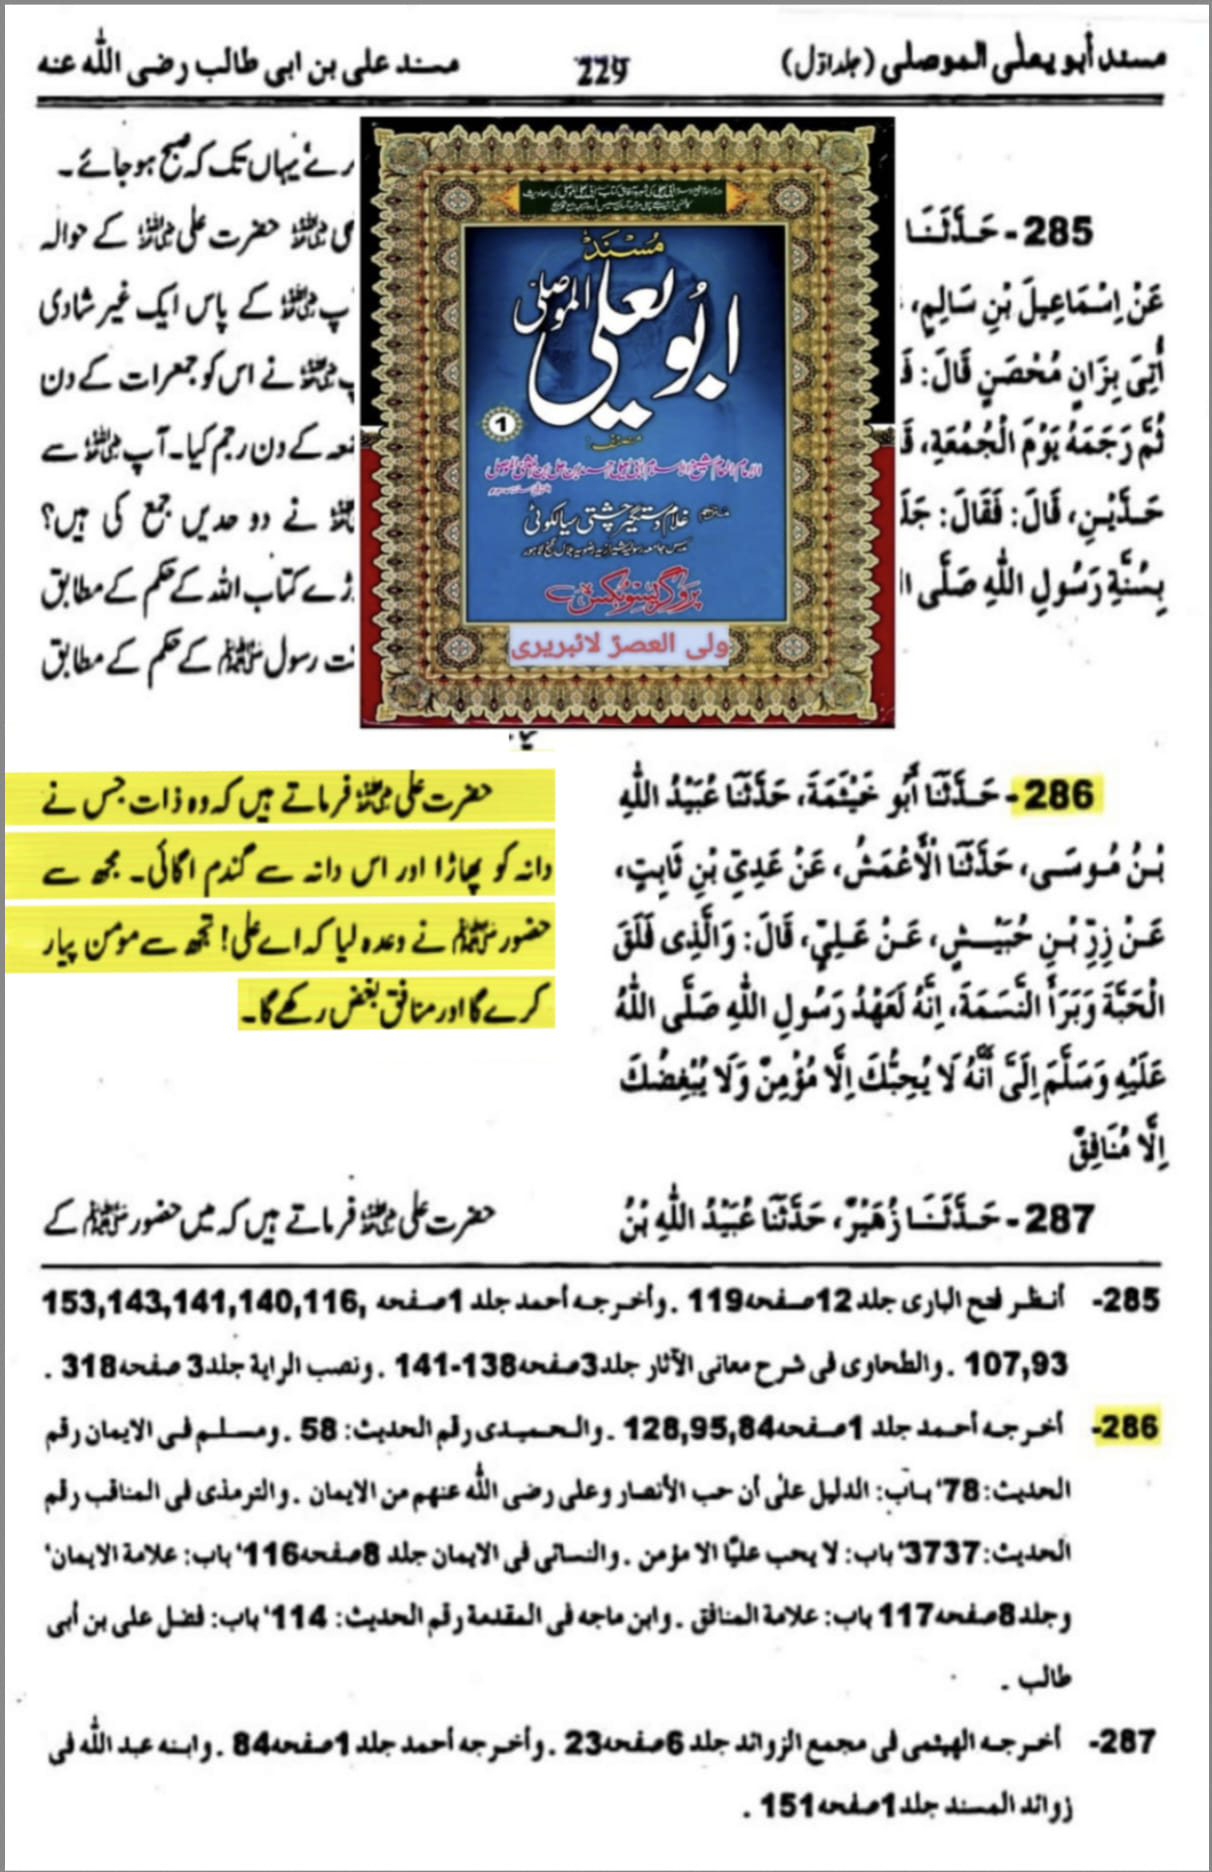 مسند أبو يعلى الموصلى (جلد اوّل)
229
مسند على بن ابى طالب رضى الله عنه
رے، یہاں تک کہ صبح ہو جائے۔
285- حَدَّثَنَا
عَنْ اِسْمَاعِيلَ بْنِ سَالِمٍ،
أُتِىَ بِزَانٍ مُحْصَنٍ قَالَ:
ثُمَّ رَجَمَهُ يَوْمَ الْجُمُعَةِ،
حَدَّيْنِ، قَالَ: فَقَالَ:
بِسُنَّةِ رَسُولِ اللهِ صَلَّى
حضرت علی رضی اللہ عنہ کے حوالہ
کے پاس ایک غیر شادی
نے اس کو جمعرات کے دن
کے دن رجم کیا۔ آپ رضی اللہ عنہ سے
نے دو حدیں جمع کی ہیں؟
کتاب اللہ کے حکم کے مطابق
رسول صلی اللہ علیہ وسلم کے حکم کے مطابق
مُسْنَد
ابُو یعلی الموصلی
1
مصنف:
مترجم
غلام دستگیر چشتی سیالکوٹی
پروگریسو بکس
ولی العصرؑ لائبریری
286- حَدَّثَنَا أَبُو خَيْثَمَةَ، حَدَّثَنَا عُبَيْدُ اللهِ
بْنُ مُوسَى، حَدَّثَنَا الْأَعْمَشُ، عَنْ عَدِيِّ بْنِ ثَابِتٍ،
عَنْ زِرِّ بْنِ حُبَيْشٍ، عَنْ عَلِيٍّ، قَالَ: وَالَّذِى فَلَقَ
الْحَبَّةَ وَبَرَأَ النَّسَمَةَ، اِنَّهُ لَعَهْدُ رَسُولِ اللهِ صَلَّى اللهُ
عَلَيْهِ وَسَلَّمَ اِلَىَّ أَنَّهُ لَا يُحِبُّكَ اِلَّا مُؤْمِنٌ وَلَا يُبْغِضُكَ
اِلَّا مُنَافِقٌ
حضرت علی رضی اللہ عنہ فرماتے ہیں کہ وہ ذات جس نے
دانہ کو پھاڑا اور اس دانہ سے گندم اگائی۔ مجھ سے
حضور صلی اللہ علیہ وسلم نے وعدہ لیا کہ اے علی! تجھ سے مؤمن پیار
کرے گا اور منافق بغض رکھے گا۔
287- حَدَّثَنَا زُهَيْرٌ، حَدَّثَنَا عُبَيْدُ اللهِ بْنُ
حضرت علی رضی اللہ عنہ فرماتے ہیں کہ میں حضور صلی اللہ علیہ وسلم کے
285- أنظر فتح البارى جلد 12صفحه119 . وأخرجه أحمد جلد 1صفحه 153,143,141,140,116,
107,93 . والطحاوى فى شرح معانى الآثار جلد3صفحه138-141 . ونصب الراية جلد3 صفحه318 .
286- أخرجه أحمد جلد 1صفحه128,95,84 . والحميدى رقم الحديث: 58 . ومسلم فى الايمان رقم
الحديث: 78' باب: الدليل على أن حب الأنصار وعلى رضى الله عنهم من الايمان . والترمذى فى المناقب رقم
الحديث: 3737' باب: لا يحب عليًّا الا مؤمن . والنسائى فى الايمان جلد 8صفحه116' باب: علامة الايمان'
وجلد8صفحه117 باب: علامة المنافق . وابن ماجه فى المقدمة رقم الحديث: 114' باب: فضل على بن أبى
طالب .
287- أخرجه الهيثمى فى مجمع الزوائد جلد 6صفحه23 . وأخرجه أحمد جلد 1صفحه84 . وابنه عبد الله فى
زوائد المسند جلد1صفحه151 .